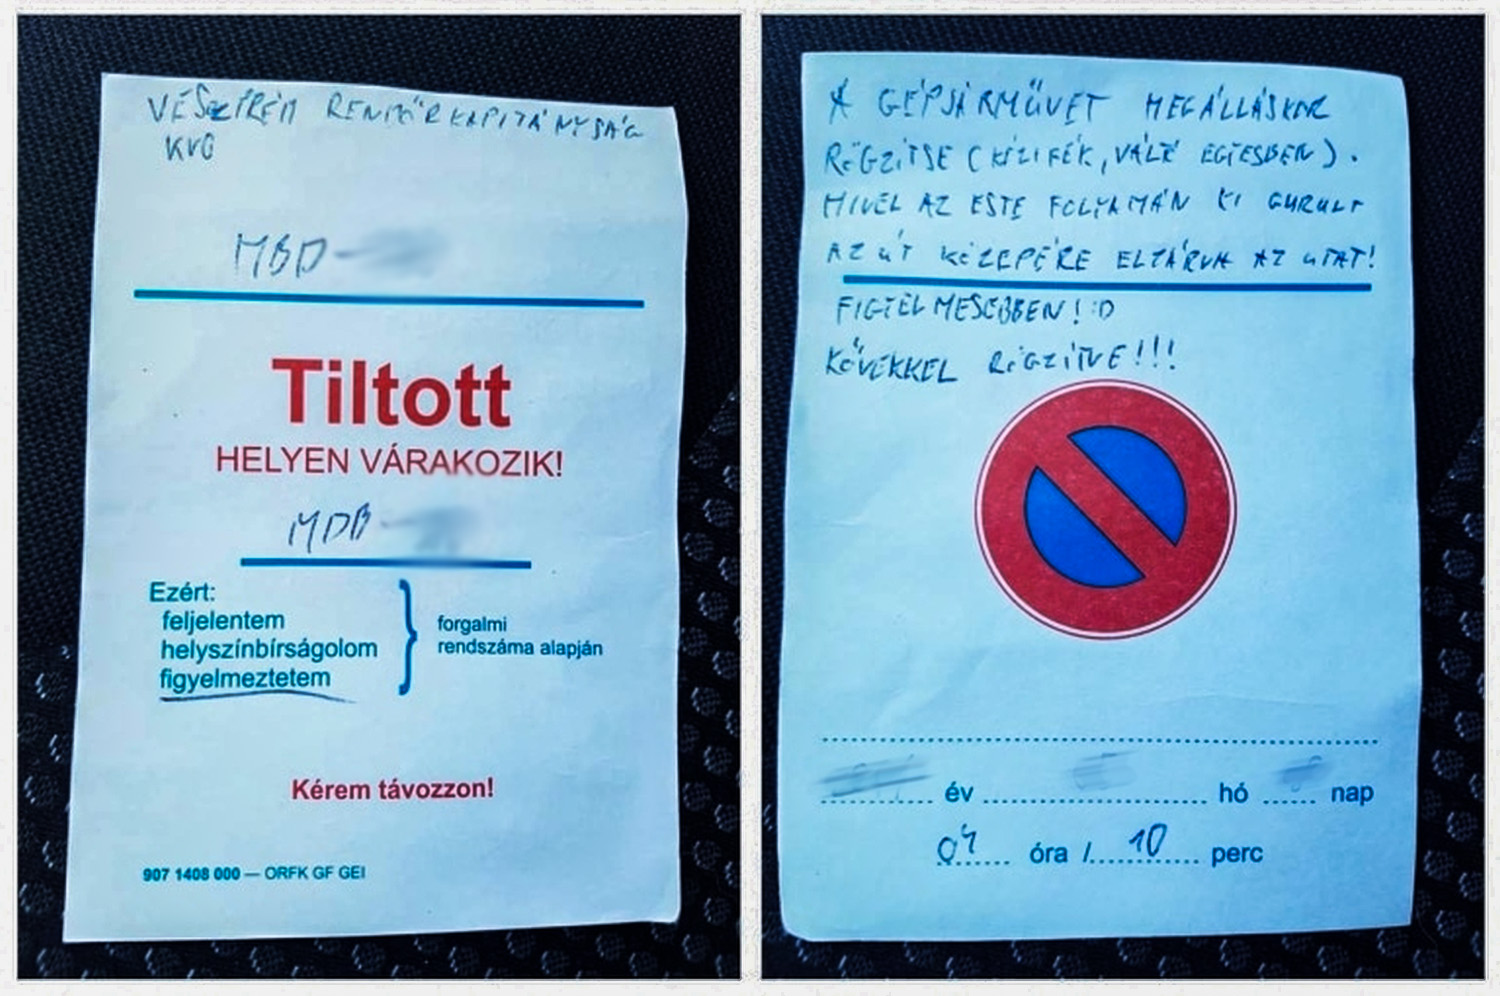 VESZPRÉM RENDŐRKAPITÁNYSÁG
KVO
MBD-
Tiltott
HELYEN VÁRAKOZIK!
MDB-
Ezért:
feljelentem
helyszínbírságolom
figyelmeztetem
forgalmi
rendszáma alapján
Kérem távozzon!
907 1408 000 — ORFK GF GEI
A GÉPJÁRMŰVET MEGÁLLÁSKOR
RÖGZÍTSE (KÉZIFÉK, VÁLTÓ EGYESBEN).
MIVEL AZ ESTE FOLYAMÁN KI GURULT
AZ ÚT KÖZEPÉRE ELZÁRVA AZ UTAT!
FIGYELMESEBBEN! :D
KÖVEKKEL RÖGZÍTVE!!!
év hó nap
04 óra / 10 perc